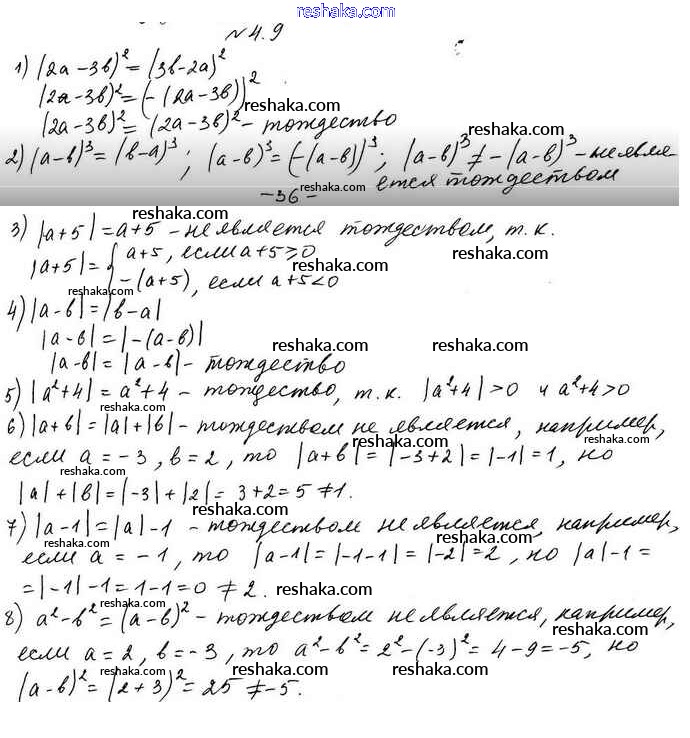 reshaka.com
№4.9
1) (2a-3b)² = (3b-2a)²
(2a-3b)² = (-(2a-3b))²
reshaka.com
(2a-3b)² = (2a-3b)² - тождество
reshaka.com
2) (a-b)³ = (b-a)³; (a-b)³ = (-(a-b))³; (a-b)³ ≠ -(a-b)³ - не явля-
ется тождеством
reshaka.com
-36-
reshaka.com
3) |a+5| = a+5 - не является тождеством, т.к.
reshaka.com
|a+5| = { a+5, если a+5≥0
reshaka.com
-(a+5), если a+5<0
reshaka.com
4) |a-b| = |b-a|
|a-b| = |-(a-b)|
reshaka.com
|a-b| = |a-b| - тождество
reshaka.com
reshaka.com
5) |a²+4| = a²+4 - тождество, т.к. |a²+4|>0 и a²+4>0
reshaka.com
6) |a+b| = |a|+|b| - тождеством не является, например,
reshaka.com
reshaka.com
если a=-3, b=2, то |a+b| = |-3+2| = |-1| = 1, но
reshaka.com
|a|+|b| = |-3|+|2| = 3+2 = 5 ≠ 1.
reshaka.com
reshaka.com
7) |a-1| = |a|-1 - тождеством не является, например,
reshaka.com
если a = -1, то |a-1| = |-1-1| = |-2| = 2, но |a|-1 =
reshaka.com
= |-1|-1 = 1-1 = 0 ≠ 2.
reshaka.com
reshaka.com
8) a²-b² = (a-b)² - тождеством не является, например,
reshaka.com
если a=2, b=-3, то a²-b² = 2²-(-3)² = 4-9 = -5, но
reshaka.com
reshaka.com
(a-b)² = (2+3)² = 25 ≠ -5.